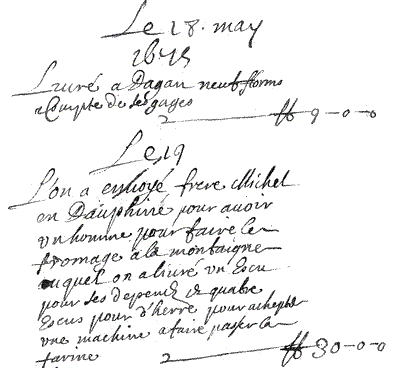 Le 28. may
1675
Liuré a Dagan neuf fforins
a Compte de ses gages
ff 9-0-0
Le 19
L'on a enuoyé frere Michel
en Dauphiné pour auoir
vn homme pour faire le
fromage a la montaigne
auquel on a liuré vn Escu
pour ses depens & quatre
Escus pour d'herre pour achepter
vne machine a faire passer la
farine
ff 30-0-0